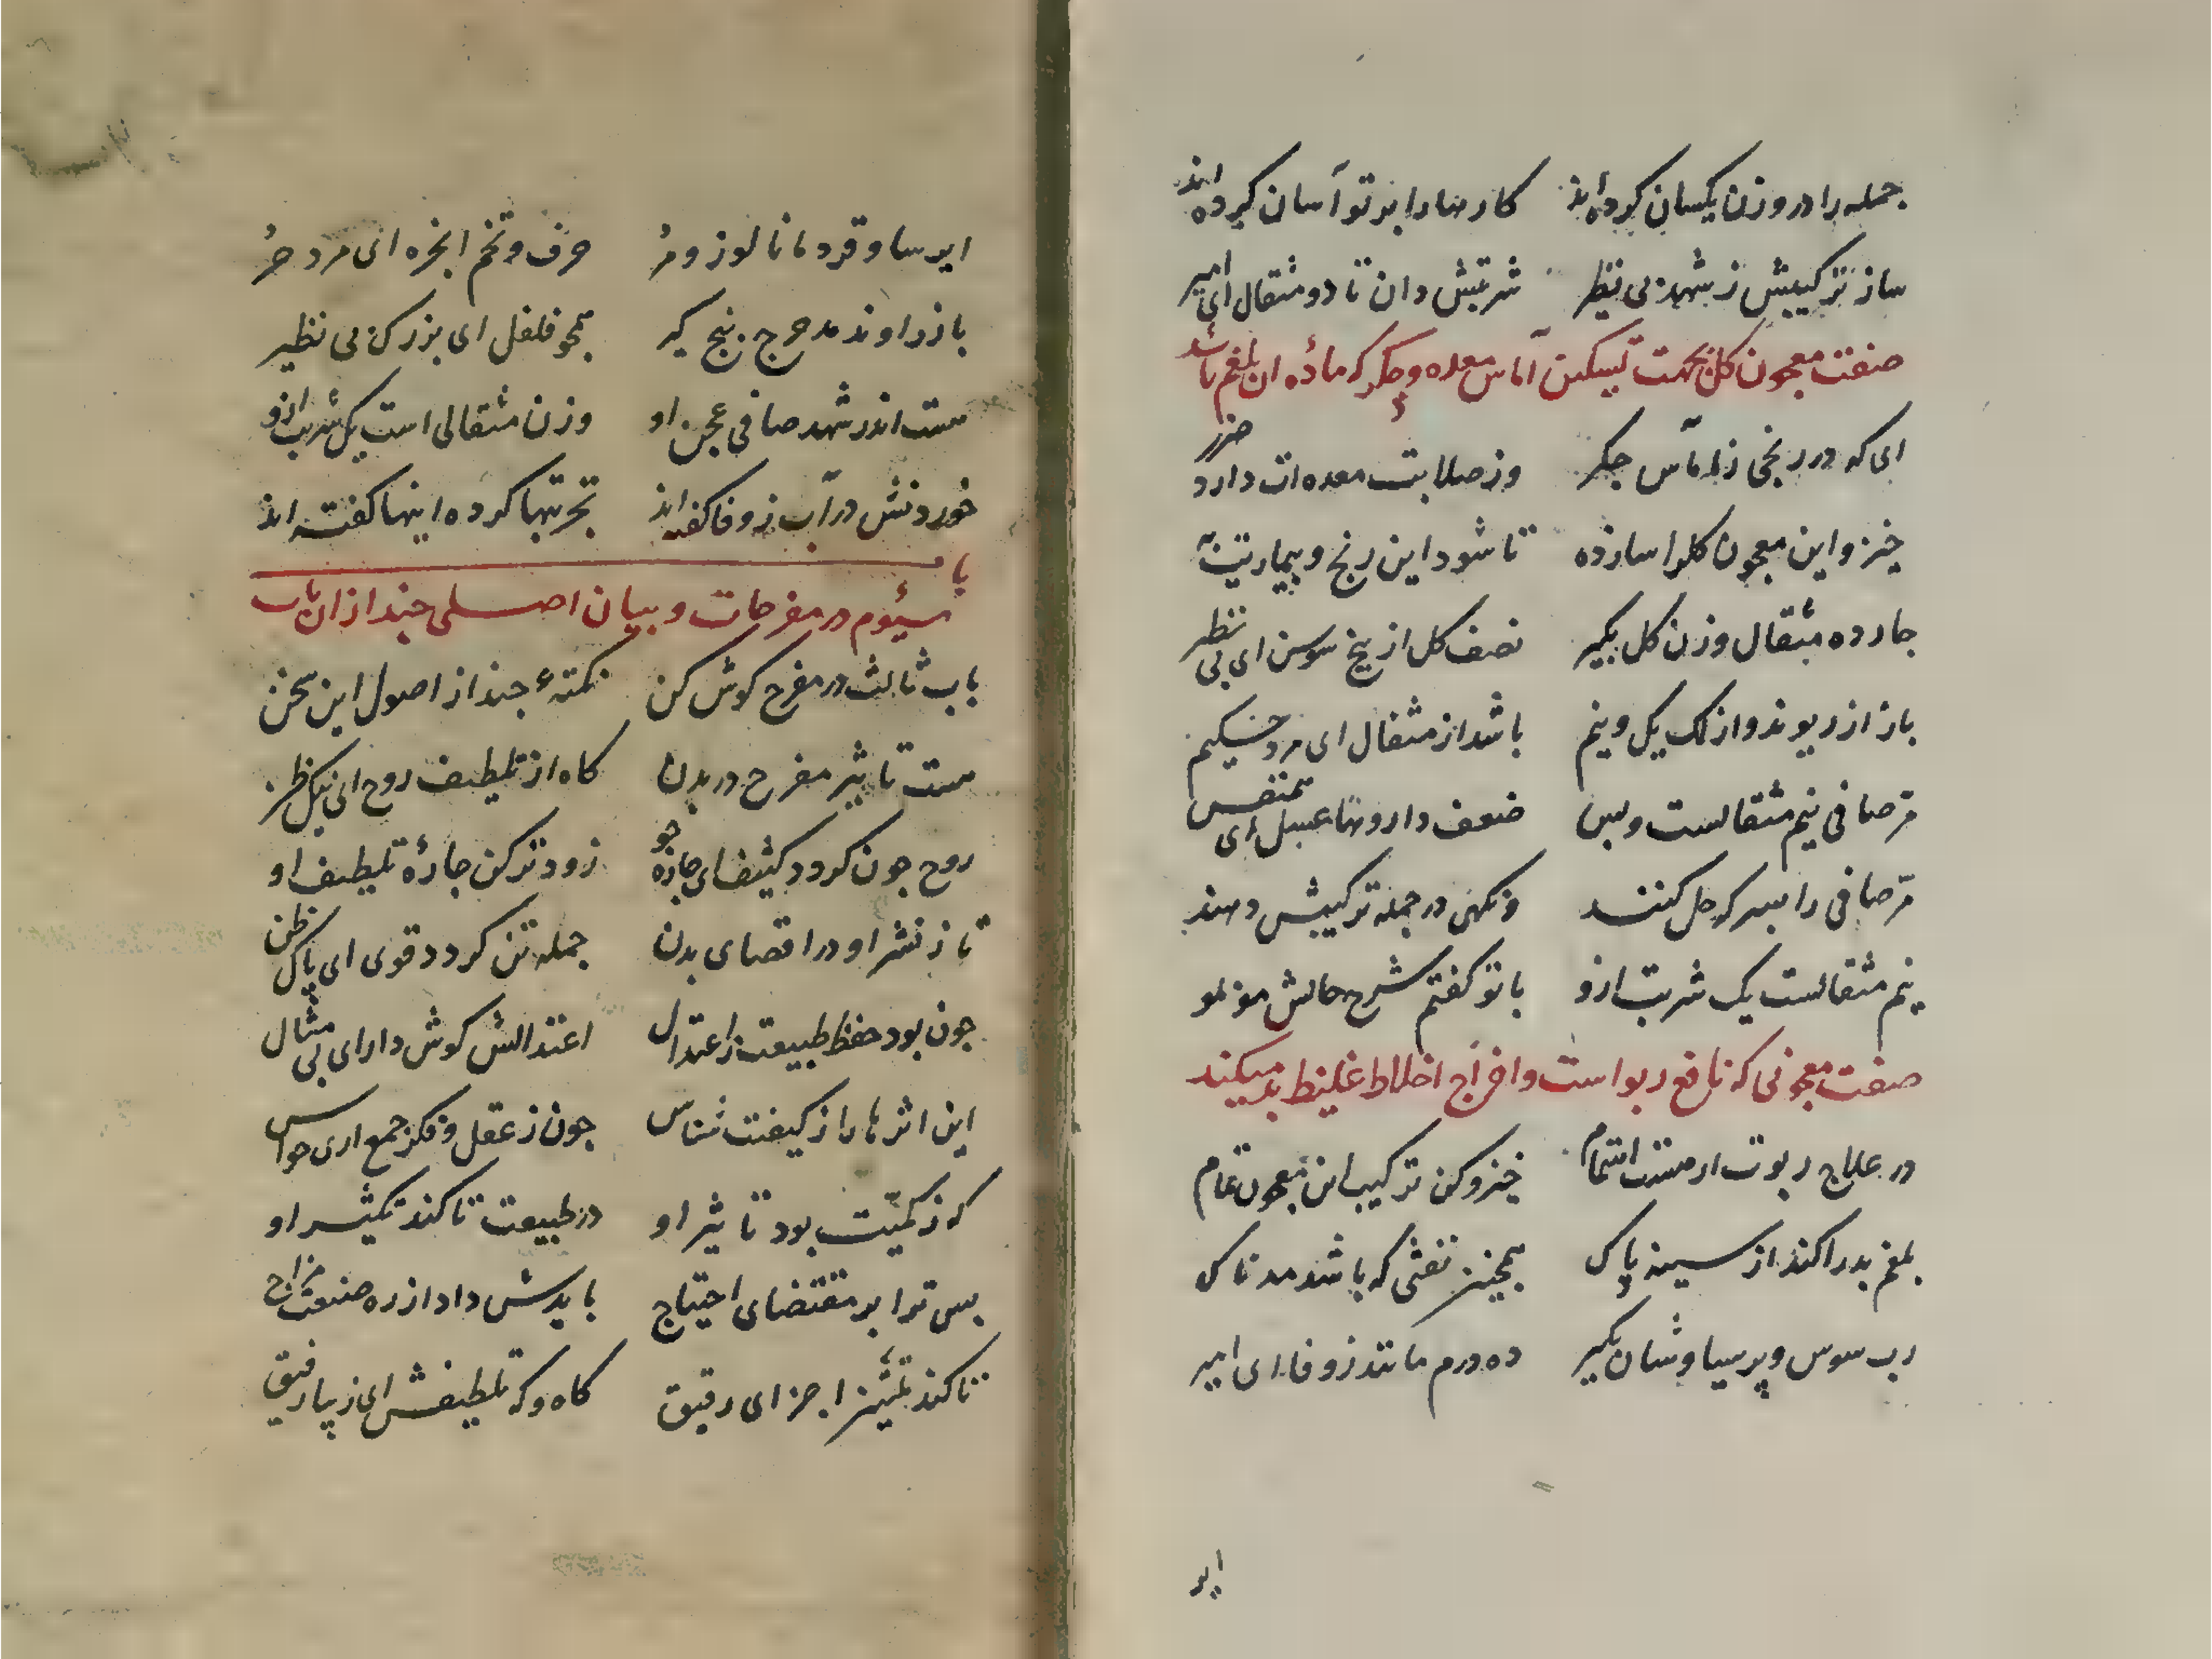 جمله را در وزن یکسان کرده‌اند کارها را بر تو آسان کرده‌اند
ساز ترکیبش ز شهد بی نظیر شربتش دان تا دو مثقال ای امیر
صفت معجون کلن بجهت تسکین آماس معده و جکر که مادهٔ ان بلغم باشد
ای که در رنجی ز اماس جکر وز صلابت معده‌ات دارد ضرر
خیز و این معجون کل را ساز ده تا شود این رنج و بیماریت به
چارده مثقال وزن کل بکیر نصف کل از بیخ سوسن ای بی نظیر
باز از ریوند و از لک یک و نیم باشد از مثقال ای مرد حکیم
مرّ صافی نیم مثقالست و بس ضعف داروها عسل ای همنفس
مرّ صافی را بسرکه حل کنند ونکهی در جمله ترکیبش دهند
نیم مثقالست یک شربت ازو با تو کفتم شرح حالش مو بمو
صفت معجونی که نافع ربو است و اخراج اخلاط غلیظ بد میکند
در علاج ربوت ار هست اهتمام خیز و کن ترکیب این معجون تمام
بلغم بد را کند از سینه پاک همچنین نفثی که باشد مدناک
رب سوس و پرسیاوشان بکیر ده درم مانند زوفا ای امیر
ایر
ایرسا و قردمانا لوز و مر حرف و تخم انجره ای مرد حر
با زراوند مدحرج پنج کیر همچو فلفل ای بزرک بی نظیر
هست اندر شهد صافی عجن او وزن مثقالی است یک شربت ازو
خوردنش در آب زوفا کفته‌اند تجربتها کرده اینها کفته‌اند
باب سیوم در مفرحات و بیان اصلی چند از ان باب
باب ثالث در مفرح کوش کن نکتهٔ چند از اصول این سخن
هست تاثیر مفرح در بدن کاه از تلطیف روح ای نیک ظن
روح چون کردد کثیف ای چاره جو زودتر کن چارهٔ تلطیف او
تا ز نشر او در اقصای بدن جمله تن کردد قوی ای پاک ظن
چون بود حفظ طبیعت ز اعتدال اعتدالش کوش دار ای بی مثال
این اثرها را ز کیفیت شناس چون ز عقل و فکر جمع اری حواس
که ز کمیّت بود تاثیر او در طبیعت تا کند تکثیر او
پس ترا بر مقتضای احتیاج بایدش داد از ره صنعت مزاج
تا کند تکثیر اجزای رقیق کاه و که تلطیفش ای زیبا رفیق